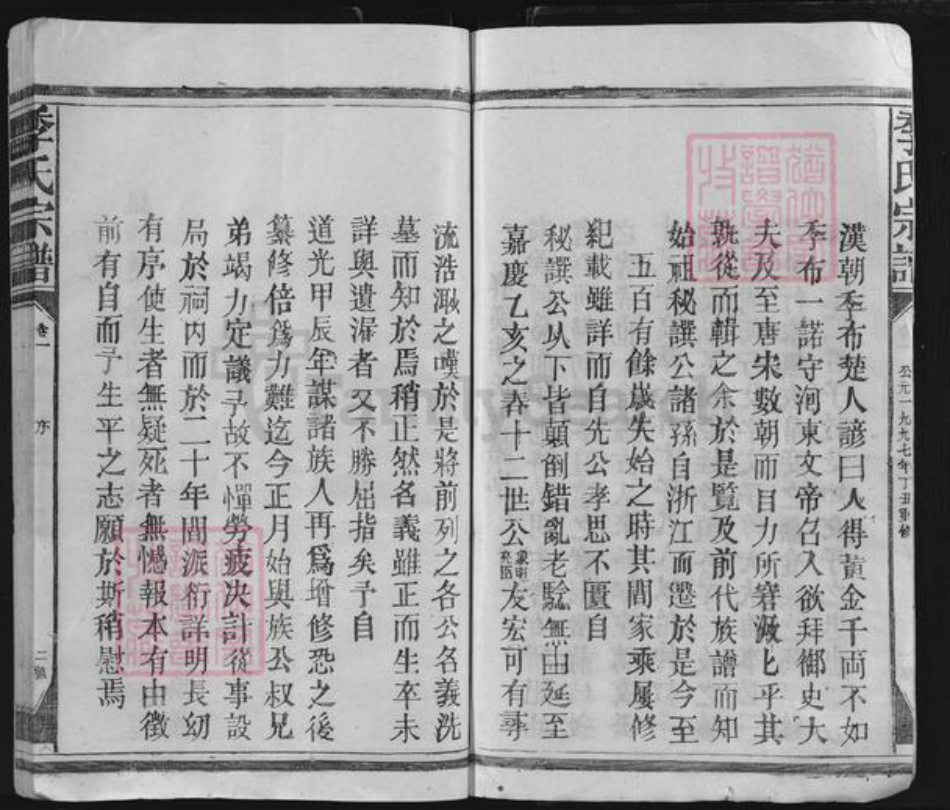 季氏宗譜
公元一九九七年丁丑重修
漢朝季布楚人諺曰人得黃金千両不如
季布一諾守河東文帝召入欲拜御史大
夫及至唐宋數朝而目力所窘漵匕乎其
從而輯之余於是覧及前代族譜而知
始祖秘譔公諸孫自浙江而遷於是今至
五百有餘嵗失始之時其間家乘屢修
紀載雖詳而自先公孝思不匱自
秘譔公以下皆顛倒錯亂老騐無由延至
嘉慶乙亥之春十二世公友宏可有事
流浩瀚之嘆於是將前列之各公名義洗
墓而知於焉稍正然名義雖正而生卒未
詳與遺漏者又不勝屈指矣予自
道光甲辰年謀諸族人再爲增修恐之後
纂修倍爲力難迄今正月始與族公叔兄
弟竭力定議予故不憚勞疲決計從事設
局於祠内而於二十年間派衍詳明長幼
有序使生者無疑死者無憾報本有由徴
前有自而予生平之志願於斯稍慰焉
季氏宗譜
卷一
序
二